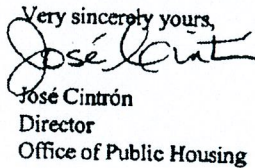 Very sincerely yours,
José Cint
José Cintrón
Director
Office of Public Housing